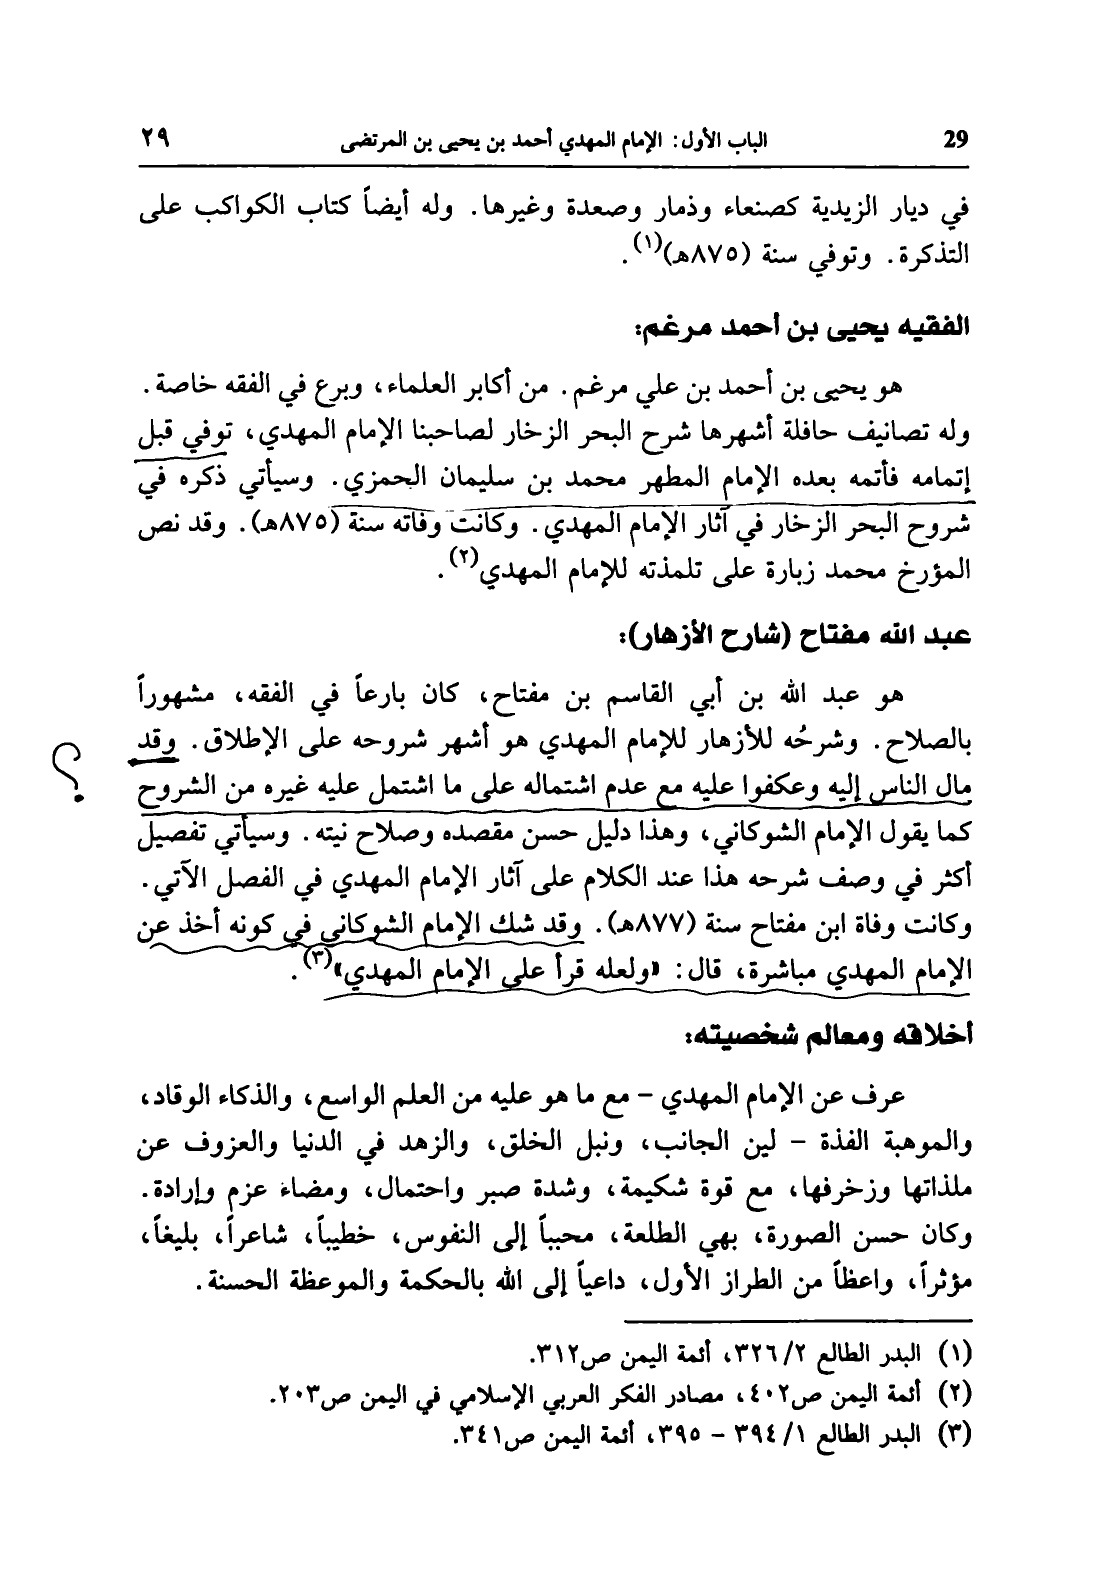 29 الباب الأول: الإمام المهدي أحمد بن يحيى بن المرتضى ٢٩
في ديار الزيدية كصنعاء وذمار وصعدة وغيرها. وله أيضاً كتاب الكواكب على
التذكرة. وتوفي سنة (٨٧٥هـ)(١).
الفقيه يحيى بن أحمد مرغم:
هو يحيى بن أحمد بن علي مرغم. من أكابر العلماء، وبرع في الفقه خاصة.
وله تصانيف حافلة أشهرها شرح البحر الزخار لصاحبنا الإمام المهدي، توفي قبل
إتمامه فأتمه بعده الإمام المطهر محمد بن سليمان الحمزي. وسيأتي ذكره في
شروح البحر الزخار في آثار الإمام المهدي. وكانت وفاته سنة (٨٧٥هـ). وقد نص
المؤرخ محمد زبارة على تلمذته للإمام المهدي(٢).
عبد الله مفتاح (شارح الأزهار):
هو عبد الله بن أبي القاسم بن مفتاح، كان بارعاً في الفقه، مشهوراً
بالصلاح. وشرحُه للأزهار للإمام المهدي هو أشهر شروحه على الإطلاق. وقد
؟
مال الناس إليه وعكفوا عليه مع عدم اشتماله على ما اشتمل عليه غيره من الشروح
كما يقول الإمام الشوكاني، وهذا دليل حسن مقصده وصلاح نيته. وسيأتي تفصيل
أكثر في وصف شرحه هذا عند الكلام على آثار الإمام المهدي في الفصل الآتي.
وكانت وفاة ابن مفتاح سنة (٨٧٧هـ). وقد شك الإمام الشوكاني في كونه أخذ عن
الإمام المهدي مباشرة، قال: «ولعله قرأ على الإمام المهدي»(٣).
أخلاقه ومعالم شخصيته:
عرف عن الإمام المهدي - مع ما هو عليه من العلم الواسع، والذكاء الوقاد،
والموهبة الفذة - لين الجانب، ونبل الخلق، والزهد في الدنيا والعزوف عن
ملذاتها وزخرفها، مع قوة شكيمة، وشدة صبر واحتمال، ومضاء عزم وإرادة.
وكان حسن الصورة، بهي الطلعة، محبباً إلى النفوس، خطيباً، شاعراً، بليغاً،
مؤثراً، واعظاً من الطراز الأول، داعياً إلى الله بالحكمة والموعظة الحسنة.
(١) البدر الطالع ٢/ ٣٢٦، أئمة اليمن ص٣١٢.
(٢) أئمة اليمن ص٤٠٢، مصادر الفكر العربي الإسلامي في اليمن ص٢٠٣.
(٣) البدر الطالع ١/ ٣٩٤ - ٣٩٥، أئمة اليمن ص٣٤١.